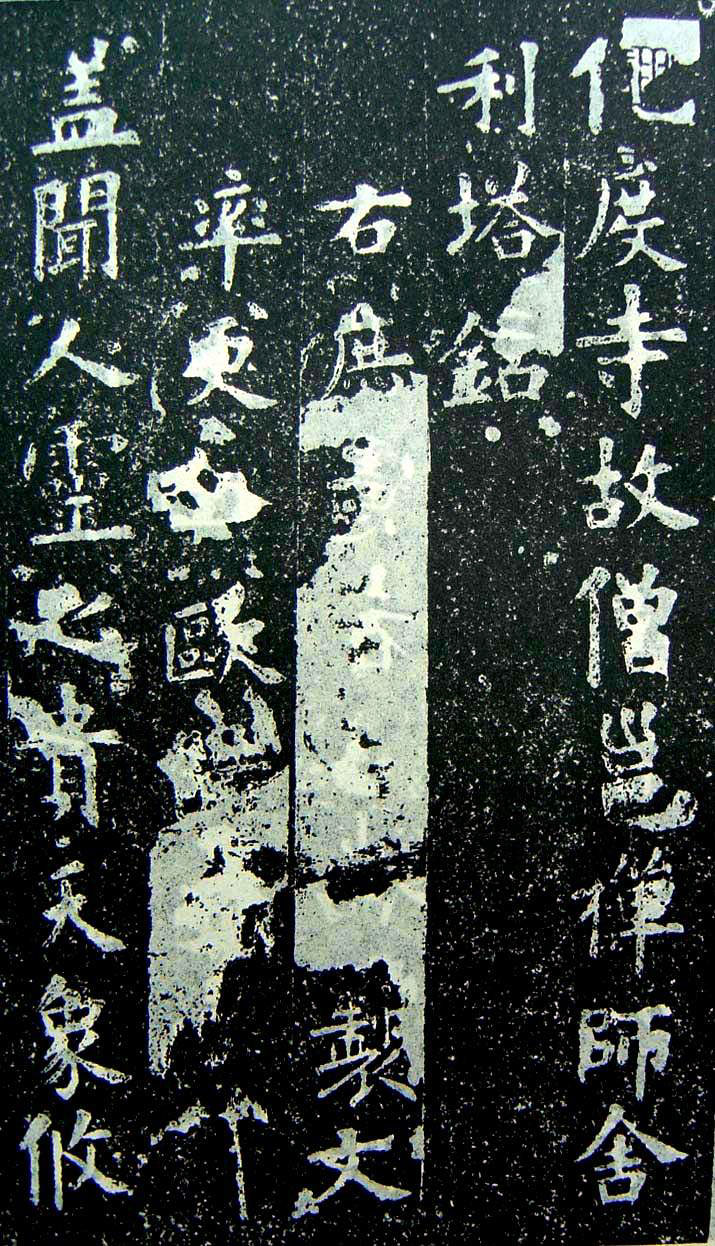 化度寺故僧邕禅師舍
利塔銘
右庶製文
率更歐
盖聞人靈之貴天象攸